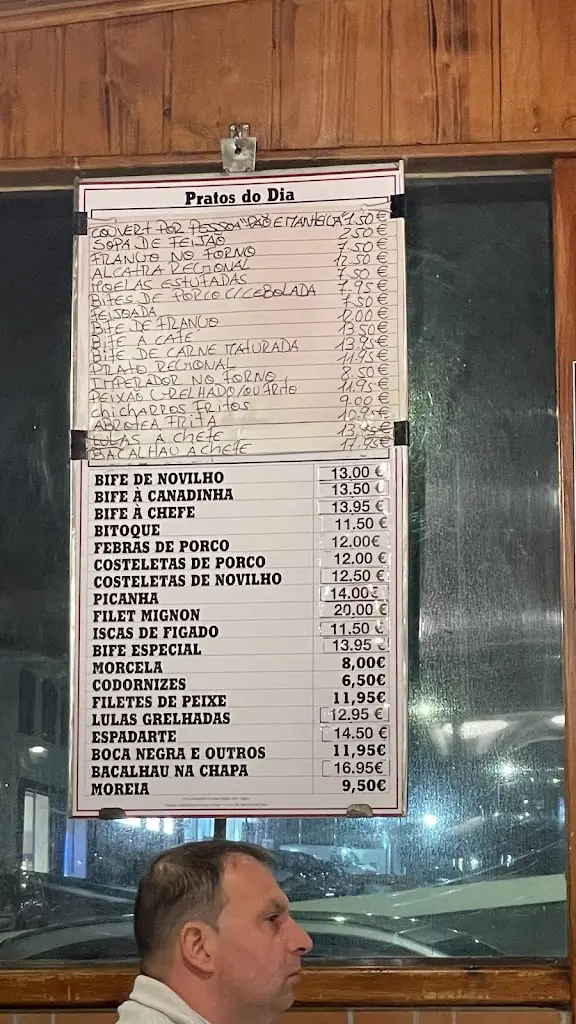 Pratos do Dia
COUVERT POR PESSOA "PÃO E MANTEIGA" 1.50€
SOPA DE FEIJÃO 2.50€
FRANGO NO FORNO 7.50€
ALCATRA REGIONAL 12.50€
MOELAS ESTUFADAS 7.50€
BIFES DE PORCO C/CEBOLADA 7.95€
FEIJOADA 7.50€
BIFE DE FRANGO 12.00€
BIFE A CAFÉ 13.50€
BIFE DE CARNE MATURADA 13.95€
PRATO REGIONAL 11.95€
IMPERADOR NO FORNO 8.50€
PEIXÃO GRELHADO/OU FRITO 11.95€
chicharros FRitos 9.00€
ABROTEA FRITA 10.95€
LULAS A chefe 13.95€
BACALHAU A chefe 17.95€
BIFE DE NOVILHO 13,00 €
BIFE À CANADINHA 13.50 €
BIFE À CHEFE 13.95 €
BITOQUE 11.50 €
FEBRAS DE PORCO 12.00€
COSTELETAS DE PORCO 12.00 €
COSTELETAS DE NOVILHO 12.50 €
PICANHA 14.00€
FILET MIGNON 20.00 €
ISCAS DE FIGADO 11.50 €
BIFE ESPECIAL 13.95 €
MORCELA 8,00€
CODORNIZES 6,50€
FILETES DE PEIXE 11,95€
LULAS GRELHADAS 12.95 €
ESPADARTE 14.50 €
BOCA NEGRA E OUTROS 11,95€
BACALHAU NA CHAPA 16.95€
MOREIA 9,50€